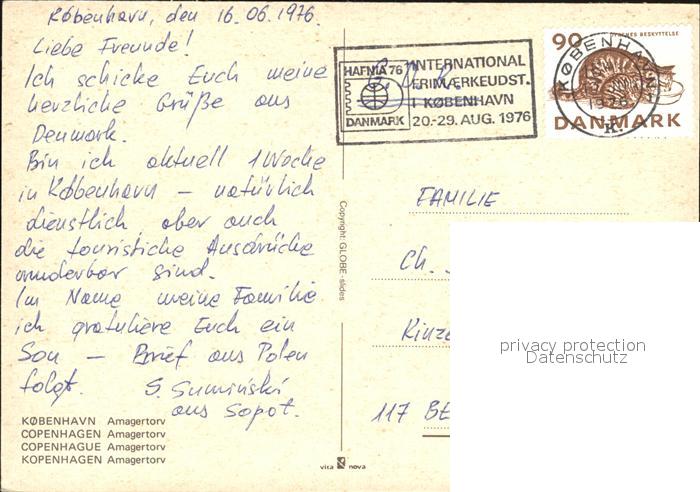 København, den 16.06.1976.
Liebe Freunde!
Ich schicke Euch meine
herzliche Grüße aus
Denmark.
Bin ich aktuell 1 Woche
in København – natürlich
dienstlich, aber auch
die touristiche Ausdrücke
wunderbar sind.
Im Name meine Familie
ich gratuliere Euch ein
Son – Brief aus Polen
folgt. S. Sumiński
aus Sopot.
KØBENHAVN Amagertorv
COPENHAGEN Amagertorv
COPENHAGUE Amagertorv
KOPENHAGEN Amagertorv
Copyright GLOBE-slides
vita nova
HAFNIA 76
DANMARK
INTERNATIONAL
FRIMÆRKEUDST.
I KØBENHAVN
20.-29. AUG. 1976
90 DYRENES BESKYTTELSE
DANMARK
KØBENHAVN
1976
K.
FAMILIE
Ch.
Kinze
117 BE
privacy protection
Datenschutz